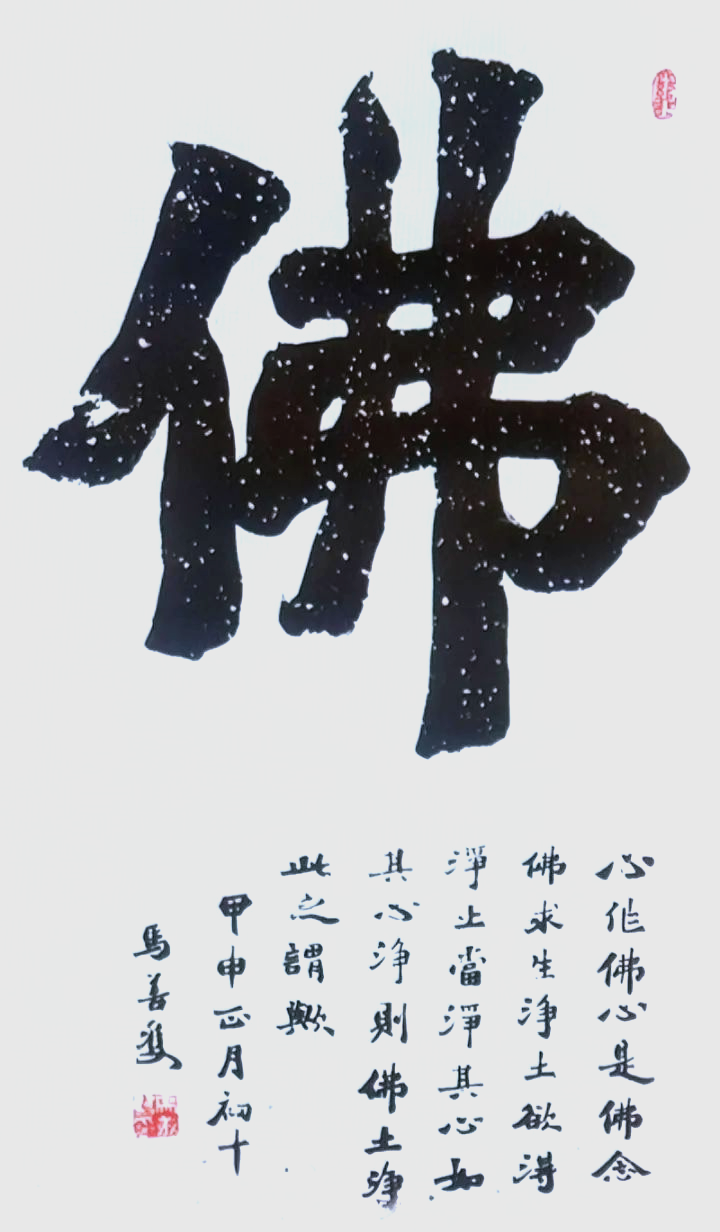 佛
心作佛心是佛念
佛求生淨土欲得
淨土當淨其心如
其心淨則佛土淨
此之謂歟
甲申正月初十
馬善